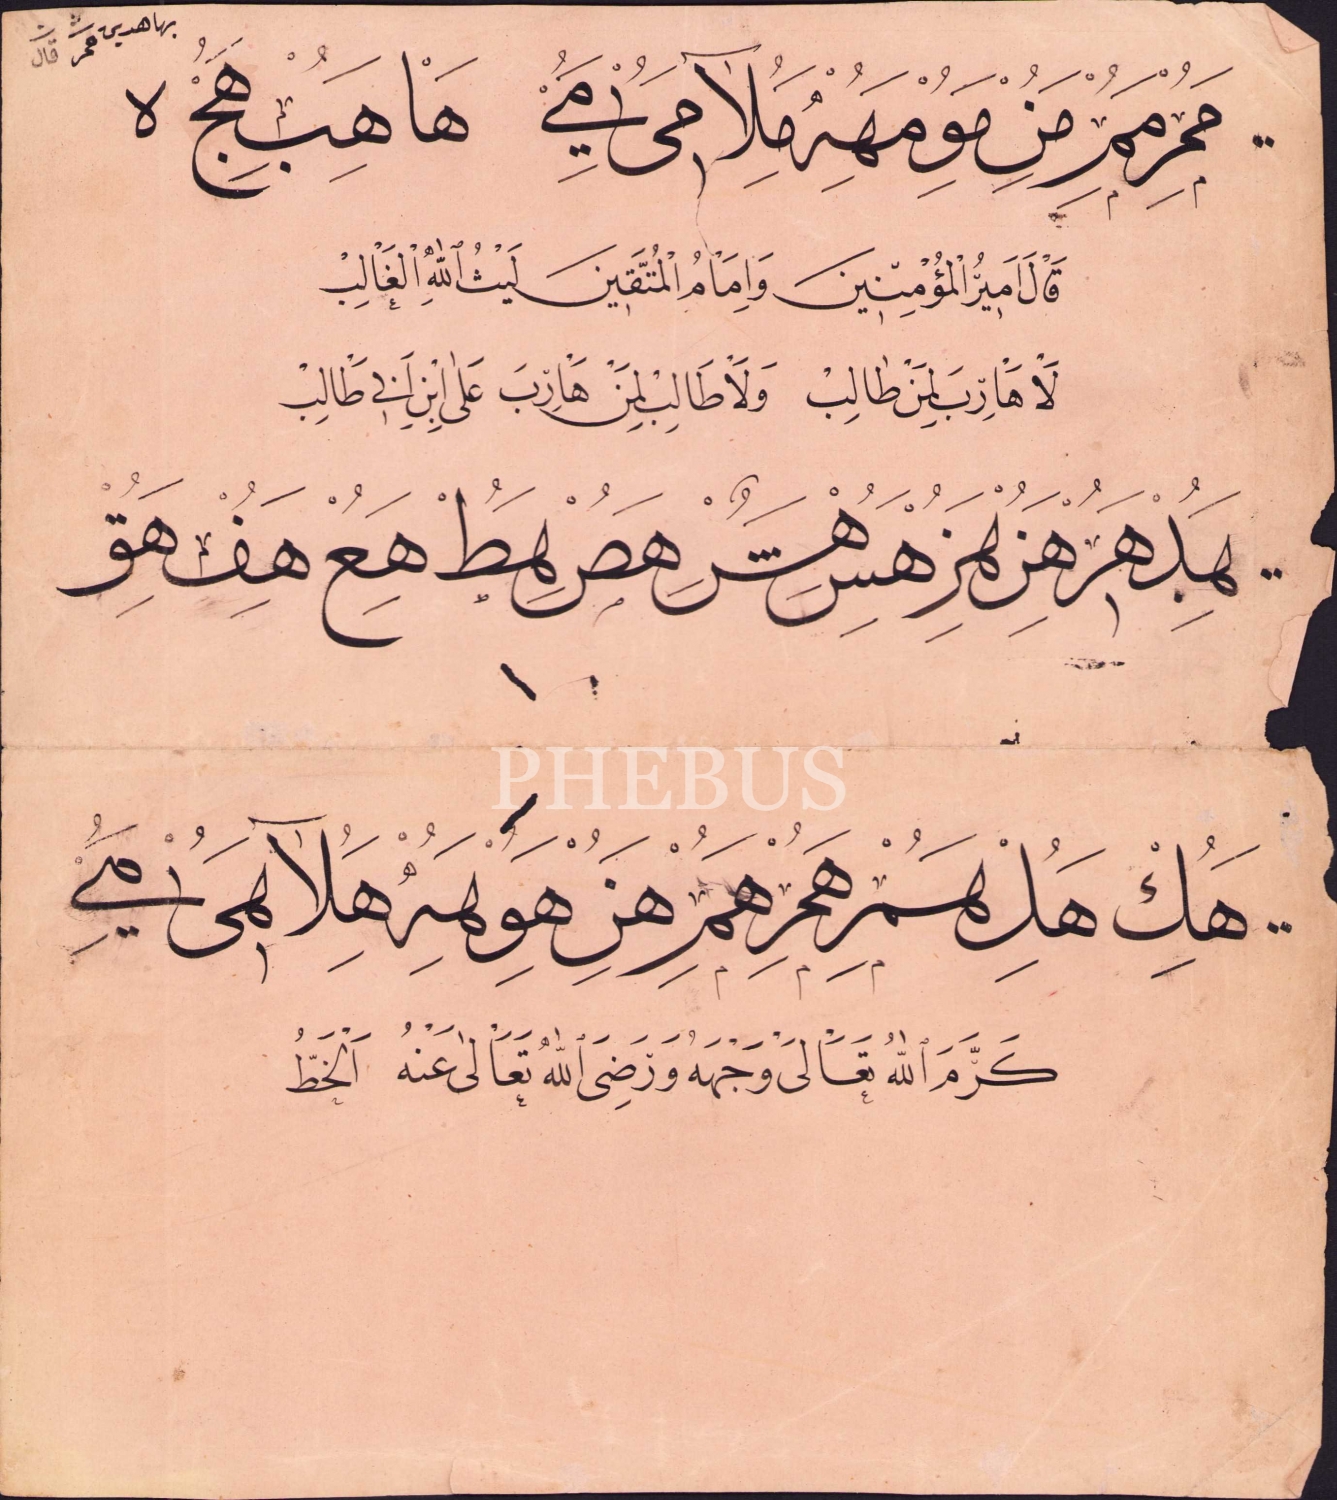 بهاهدین
قال
مم ممر من مو مه ملا می می ها هب هج
قَالَ اَمِيرُ الْمُؤْمِنِينَ وَاِمَامُ الْمُتَّقِينَ لَيْثُ اللّٰهِ الْغَالِبْ
لَا هَارِبَ لِمَنْ طَالِبْ وَلَا طَالِبْ لِمَنْ هَارِبَ عَلَى ابْنِ اَبِي طَالِبْ
هد هر هس هش هص هط هع هف هق
PHEBUS
هك هل هم هن هو هه هلا هی
كَرَّمَ اللّٰهُ تَعَالَى وَجْهَهُ وَرَضِىَ اللّٰهُ تَعَالٰى عَنْهُ اَلْخَطُّ